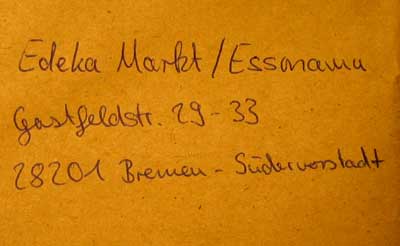 Edeka Markt / Essmann
Gastfeldstr. 29-33
28201 Bremen - Südervorstadt